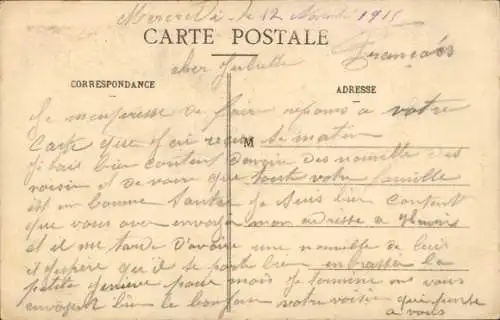 Mercredi le 12 1915
CARTE POSTALE
Français
cher Juliette
CORRESPONDANCE
ADRESSE
Je mempresse de faire repons a votre
Carte que j'ai reçue M se matin
Jetais bien content davoir des nouvelle des
voisin et de voir que tout votre famille
est en bonne Je suis bien content
que vous aver envoyer mon adresse a
et il me tarde D'avoire une nouvelle de lui
et j'espère qu'il se porte bien enbrasser la
petite pour moi Je termine en vous
envoyent bien le bonjour votre voisin qui pense
a vous